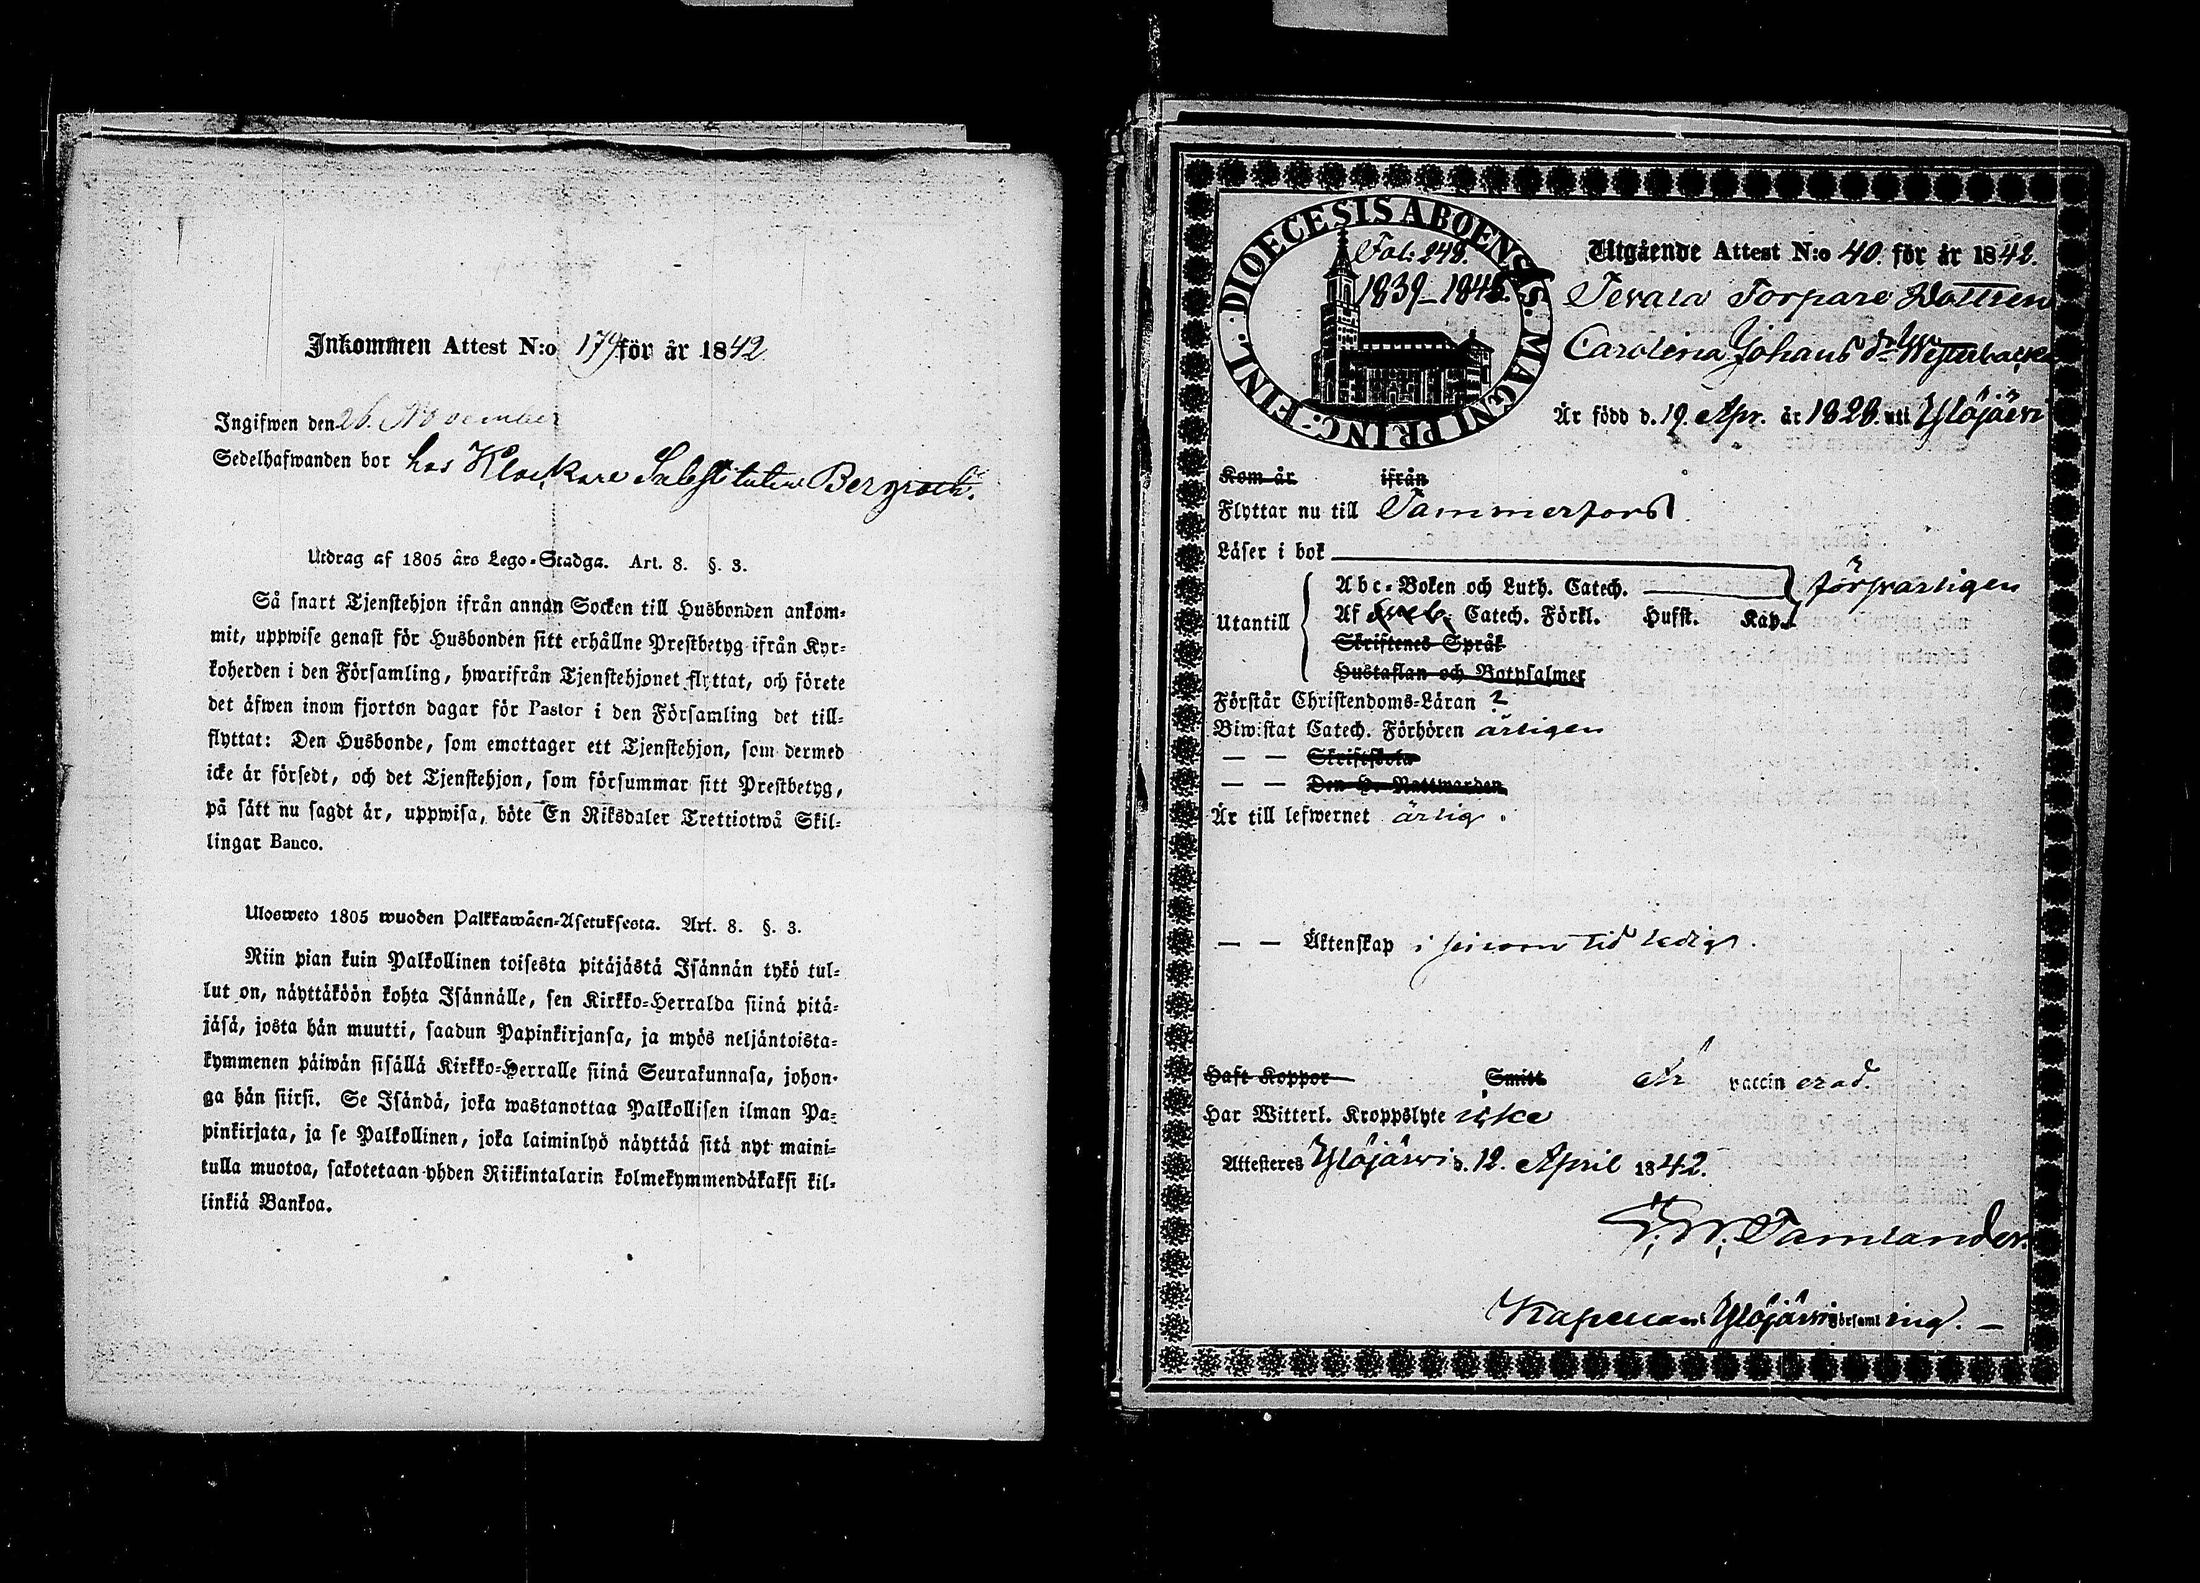 Inkommen Attest N:o 179 för år 1842
Ingifwen den 26. November
Sedelhafwanden bor hos Klockare Substituten Bergroth.
Utdrag af 1805 års Lego-Stadga. Art. 8. §. 3.
Så snart Tjenstehjon ifrån annan Socken till Husbonden ankom-
mit, uppwise genast för Husbonden sitt erhållne Prestbetyg ifrån Kyr-
koherden i den Församling, hwarifrån Tjenstehjonet flyttat, och förete
det äfwen inom fjorton dagar för Pastor i den Församling det till-
flyttat: Den Husbonde, som emottager ett Tjenstehjon, som dermed
icke är försedt, och det Tjenstehjon, som försummar sitt Prestbetyg,
på sätt nu sagdt är, uppwisa, böte En Riksdaler Trettiotwå Skil-
lingar Banco.
Ulosweto 1805 wuoden Palkkawäen-Asetuksesta. Art. 8. §. 3.
Niin pian kuin Palkollinen toisesta pitäjästä Isännän tykö tul-
lut on, näyttäköön kohta Isännälle, sen Kirkko-Herralda siinä pitä-
jäsä, josta hän muutti, saadun Papinkirjansa, ja myös neljäntoista-
kymmenen päiwän sisällä Kirkko-Herralle siinä Seurakunnasa, johon-
ga hän siirsi. Se Isändä, joka wastanottaa Palkollisen ilman Pa-
pinkirjata, ja se Palkollinen, joka laiminlyö näyttää sitä nyt maini-
tulla muotoa, sakotetaan yhden Riikintalarin kolmekymmendäkaksi kil-
linkiä Bankoa.
DIOECESIS ABOENSIS. MAGNI PRINC: FINL.
Fol: 248.
1839–1845.
Utgående Attest N:o 40. för år 1842.
Torpare Dottren
Carolina Johans dr Westerbacka
Är född d. 19. Apr. år 1828. uti Ylöjärvi
Kom år ifrån
Flyttar nu till Tammerfors
Läser i bok
Utantill
Abc-Boken och Luth. Catech. försvarligen
Af Catech. Förkl. Hufst. Kap.
Skriftenes Språk
Hustaflan och Botpsalmer
Förstår Christendoms-Läran ?
Biwistat Catech. Förhören årligen
— — Skriftskola
— — Den H. Nattwarden
Är till lefwernet ärlig.
— — Äktenskap i sinom tid ledig.
Haft Koppor Smitt Är vaccinerad.
Har Witterl. Kroppslyte icke
Attesteres Ylöjärvi d. 12. April 1842.
Tamlander.
Kapellan i Ylöjärvi församling. —